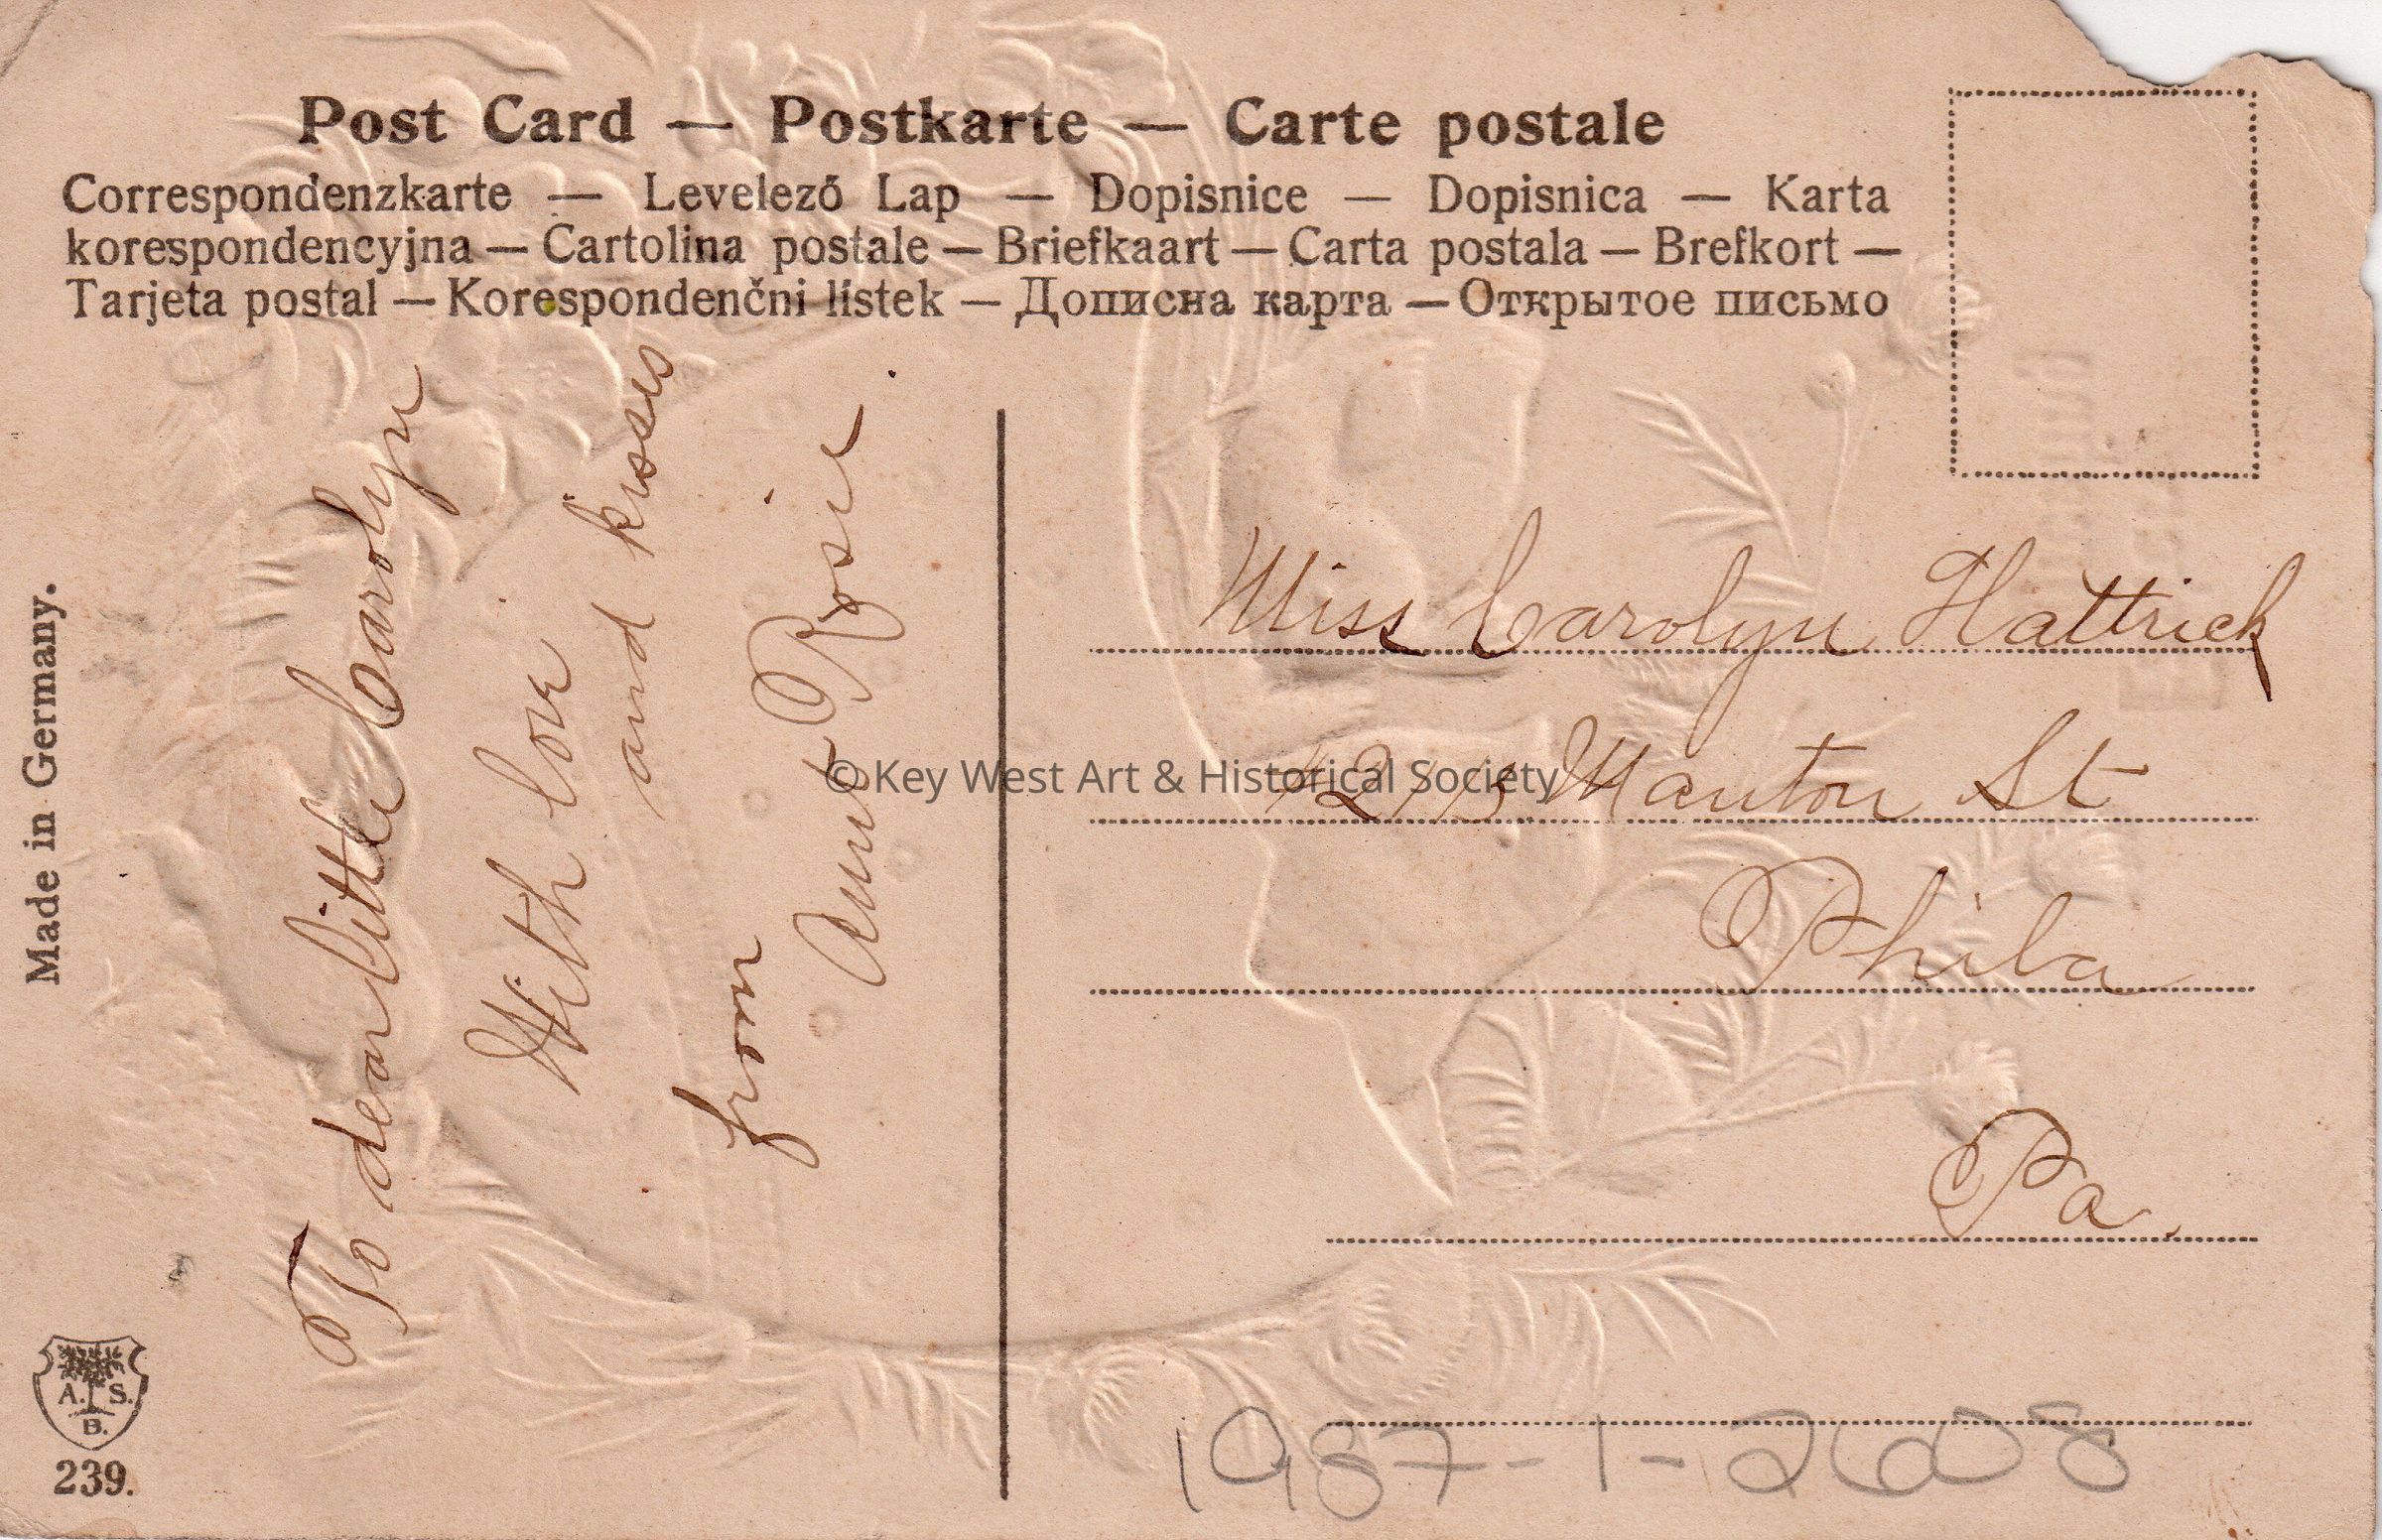 Post Card — Postkarte — Carte postale
Correspondenzkarte — Levelező Lap — Dopisnice — Dopisnica — Karta
korespondencyjna — Cartolina postale — Briefkaart — Carta postala — Brefkort —
Tarjeta postal — Korespondenčni listek — Дописна карта — Открытое письмо
Made in Germany.
To dear little Carolyn
With love
and kisses
from
Aunt Rosie
Miss Carolyn Hattrick
Manton St
Phila
Pa.
©Key West Art & Historical Society
A. S.
B.
239.
1987-1-2608